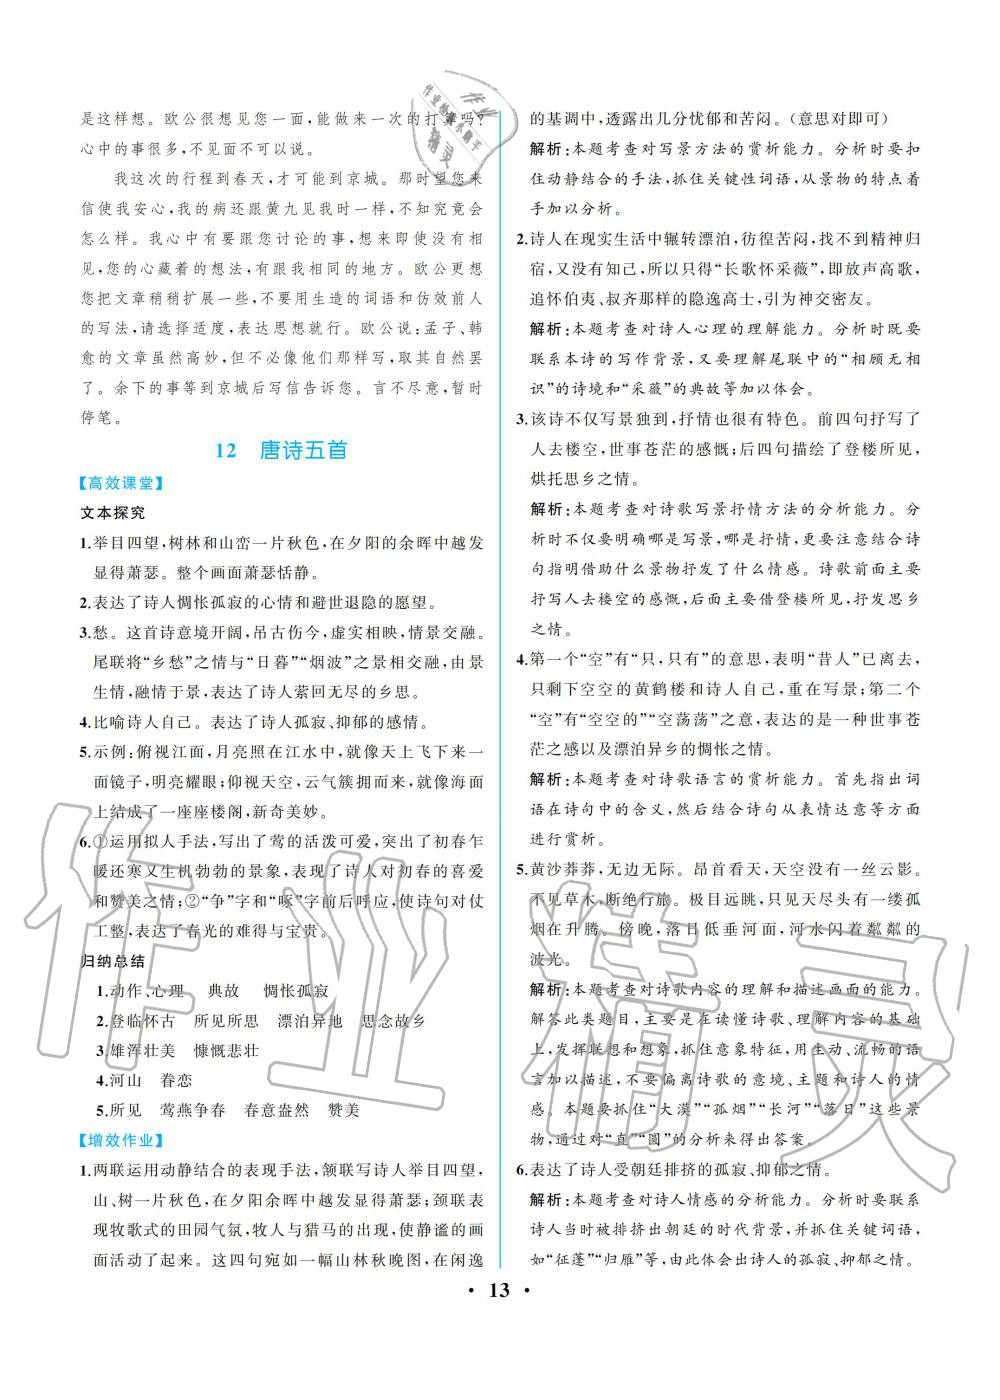 是这样想。欧公很想见您一面,能做来一次的打算吗?
心中的事很多,不见面不可以说。
我这次的行程到春天,才可能到京城。那时望您来
信使我安心,我的病还跟黄九见我时一样,不知究竟会
怎么样。我心中有要跟您讨论的事,想来即使没有相
见,您的心藏着的想法,有跟我相同的地方。欧公更想
您把文章稍稍扩展一些,不要用生造的词语和仿效前人
的写法,请选择适度,表达思想就行。欧公说:孟子、韩
愈的文章虽然高妙,但不必像他们那样写,取其自然罢
了。余下的事等到京城后写信告诉您。言不尽意,暂时
停笔。
12 唐诗五首
【高效课堂】
文本探究
1.举目四望,树林和山峦一片秋色,在夕阳的余晖中越发
显得萧瑟。整个画面萧瑟恬静。
2.表达了诗人惆怅孤寂的心情和避世退隐的愿望。
3.愁。这首诗意境开阔,吊古伤今,虚实相映,情景交融。
尾联将“乡愁”之情与“日暮”“烟波”之景相交融,由景
生情,融情于景,表达了诗人萦回无尽的乡思。
4.比喻诗人自己。表达了诗人孤寂、抑郁的感情。
5.示例:俯视江面,月亮照在江水中,就像天上飞下来一
面镜子,明亮耀眼;仰视天空,云气簇拥而来,就像海面
上结成了一座座楼阁,新奇美妙。
6.①运用拟人手法,写出了莺的活泼可爱,突出了初春乍
暖还寒又生机勃勃的景象,表现了诗人对初春的喜爱
和赞美之情;②“争”字和“啄”字前后呼应,使诗句对仗
工整,表达了春光的难得与宝贵。
归纳总结
1.动作、心理 典故 惆怅孤寂
2.登临怀古 所见所思 漂泊异地 思念故乡
3.雄浑壮美 慷慨悲壮
4.河山 眷恋
5.所见 莺燕争春 春意盎然 赞美
【增效作业】
1.两联运用动静结合的表现手法,颔联写诗人举目四望,
山、树一片秋色,在夕阳余晖中越发显得萧瑟;颈联表
现牧歌式的田园气氛,牧人与猎马的出现,使静谧的画
面活动了起来。这四句宛如一幅山林秋晚图,在闲逸
的基调中,透露出几分忧郁和苦闷。(意思对即可)
解析:本题考查对写景方法的赏析能力。分析时要扣
住动静结合的手法,抓住关键性词语,从景物的特点着
手加以分析。
2.诗人在现实生活中辗转漂泊,彷徨苦闷,找不到精神归
宿,又没有知己,所以只得“长歌怀采薇”,即放声高歌,
追怀伯夷、叔齐那样的隐逸高士,引为神交密友。
解析:本题考查对诗人心理的理解能力。分析时既要
联系本诗的写作背景,又要理解尾联中的“相顾无相
识”的诗境和“采薇”的典故等加以体会。
3.该诗不仅写景独到,抒情也很有特色。前四句抒写了
人去楼空,世事苍茫的感慨;后四句描绘了登楼所见,
烘托思乡之情。
解析:本题考查对诗歌写景抒情方法的分析能力。分
析时不仅要明确哪是写景,哪是抒情,更要注意结合诗
句指明借助什么景物抒发了什么情感。诗歌前面主要
抒写人去楼空的感慨,后面主要借登楼所见,抒发思乡
之情。
4.第一个“空”有“只,只有”的意思,表明“昔人”已离去,
只剩下空空的黄鹤楼和诗人自己,重在写景;第二个
“空”有“空空的”“空荡荡”之意,表达的是一种世事苍
茫之感以及漂泊异乡的惆怅之情。
解析:本题考查对诗歌语言的赏析能力。首先指出词
语在诗句中的含义,然后结合诗句从表情达意等方面
进行赏析。
5.黄沙莽莽,无边无际。昂首看天,天空没有一丝云影。
不见草木,断绝行旅。极目远眺,只见天尽头有一缕孤
烟在升腾。傍晚,落日低垂河面,河水闪着粼粼的
波光。
解析:本题考查对诗歌内容的理解和描述画面的能力。
解答此类题目,主要是在读懂诗歌、理解内容的基础
上,发挥联想和想象,抓住意象特征,用生动、流畅的语
言加以描述,不要偏离诗歌的意境、主题和诗人的情
感。本题要抓住“大漠”“孤烟”“长河”“落日”这些景
物,通过对“直”“圆”的分析来得出答案。
6.表达了诗人受朝廷排挤的孤寂、抑郁之情。
解析:本题考查对诗人情感的分析能力。分析时要联系
诗人当时被排挤出朝廷的时代背景,并抓住关键词语,
如“征蓬”“归雁”等,由此体会出诗人的孤寂、抑郁之情。
· 13 ·
作业精灵